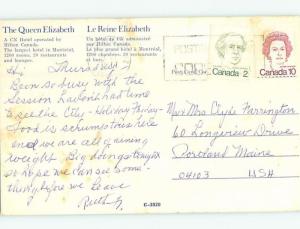 The Queen Elizabeth
A CN Hotel operated by
Hilton Canada.
The largest hotel in Montreal,
1200 rooms, 20 restaurants
and lounges.
Le Reine Elizabeth
Un hôtel du CN administré
par Hilton Canada.
Le plus grand hôtel à Montréal,
1200 chambres, 20 restaurants
et bars.
Canada 2
Postes Postage
Canada 10
Hi Thursday
Been so busy with the
Session haven't had time
See the City - Holiday
Food is scrumptious here
and we are all gaining
weight. Big doings tonight
so hope we can see some-
thing before we leave
Ruth
Mr & Mrs Clyde Farrington
60 Longview Drive
Portland Maine
04103 USA
C-3920